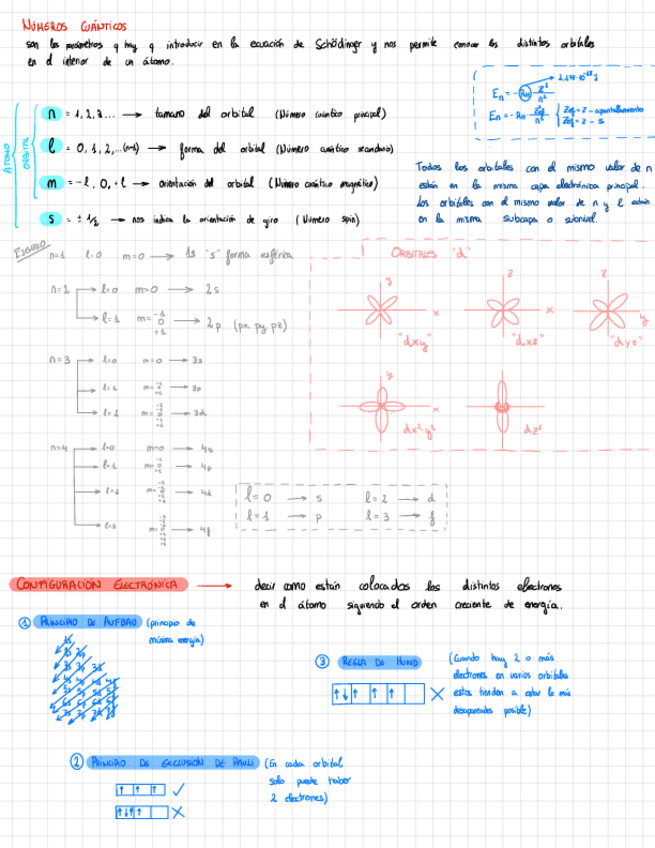 NÚMEROS CUÁNTICOS
son los parámetros q hay q introducir en la ecuación de Schödinger y nos permite conocer los distintos orbitales
en el interior de un átomo.
En = -RH Z²/n²
En = -RH Zef²/n² { Zef = Z - apantallamiento
Zef = Z - S
ÁTOMO
ORBITAL
n = 1, 2, 3... → tamano del orbital (Número cuántico principal)
l = 0, 1, 2, ...(n-1) → forma del orbital (Número cuántico secundario)
m = -l, 0, +l → orientación del orbital (Número cuántico magnético)
s = ± 1/2 → nos indica la orientación de giro (Número spin)
Todos los orbitales con el mismo valor de n
están en la misma capa electrónica principal.
Los orbitales con el mismo valor de n y l están
en la misma subcapa o subnivel.
EJEMPLO
n=1 l=0 m=0 → 1s "s" forma esférica
n=2 l=0 m=0 → 2s
l=1 m= -1 0 +1 → 2p (px py pz)
n=3 l=0 m=0 → 3s
l=1 → 3p
l=2 → 3d
n=4 l=0 m=0 → 4s
l=1 m= -1 0 +1 → 4p
l=2 → 4d
l=3 → 4f
ORBITALES "d"
y x "dxy"
z x "dxz"
z y "dyz"
y x dx²-y²
dz²
l=0 → s l=2 → d
l=1 → p l=3 → f
CONFIGURACIÓN ELECTRÓNICA → decir como están colocados los distintos electrones
en el átomo siguiendo el orden creciente de energía.
① PRINCIPIO DE AUFBAU (principio de
mínima energía)
③ REGLA DE HUND (Cuando hay 2 o más
electrones en varios orbitales
estos tienden a estar lo más
desapareados posible)
② PRINCIPIO DE EXCLUSIÓN DE PAULI (En cada orbital
solo puede haber
2 electrones)